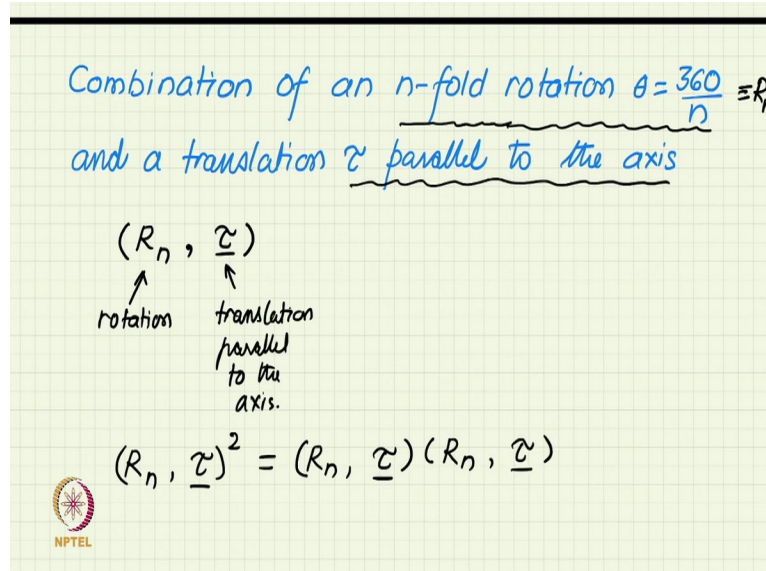 Combination of an n-fold rotation θ = 360/n ≡ R
and a translation τ parallel to the axis
(Rn, τ)
rotation
translation parallel to the axis.
(Rn, τ)² = (Rn, τ)(Rn, τ)
NPTEL